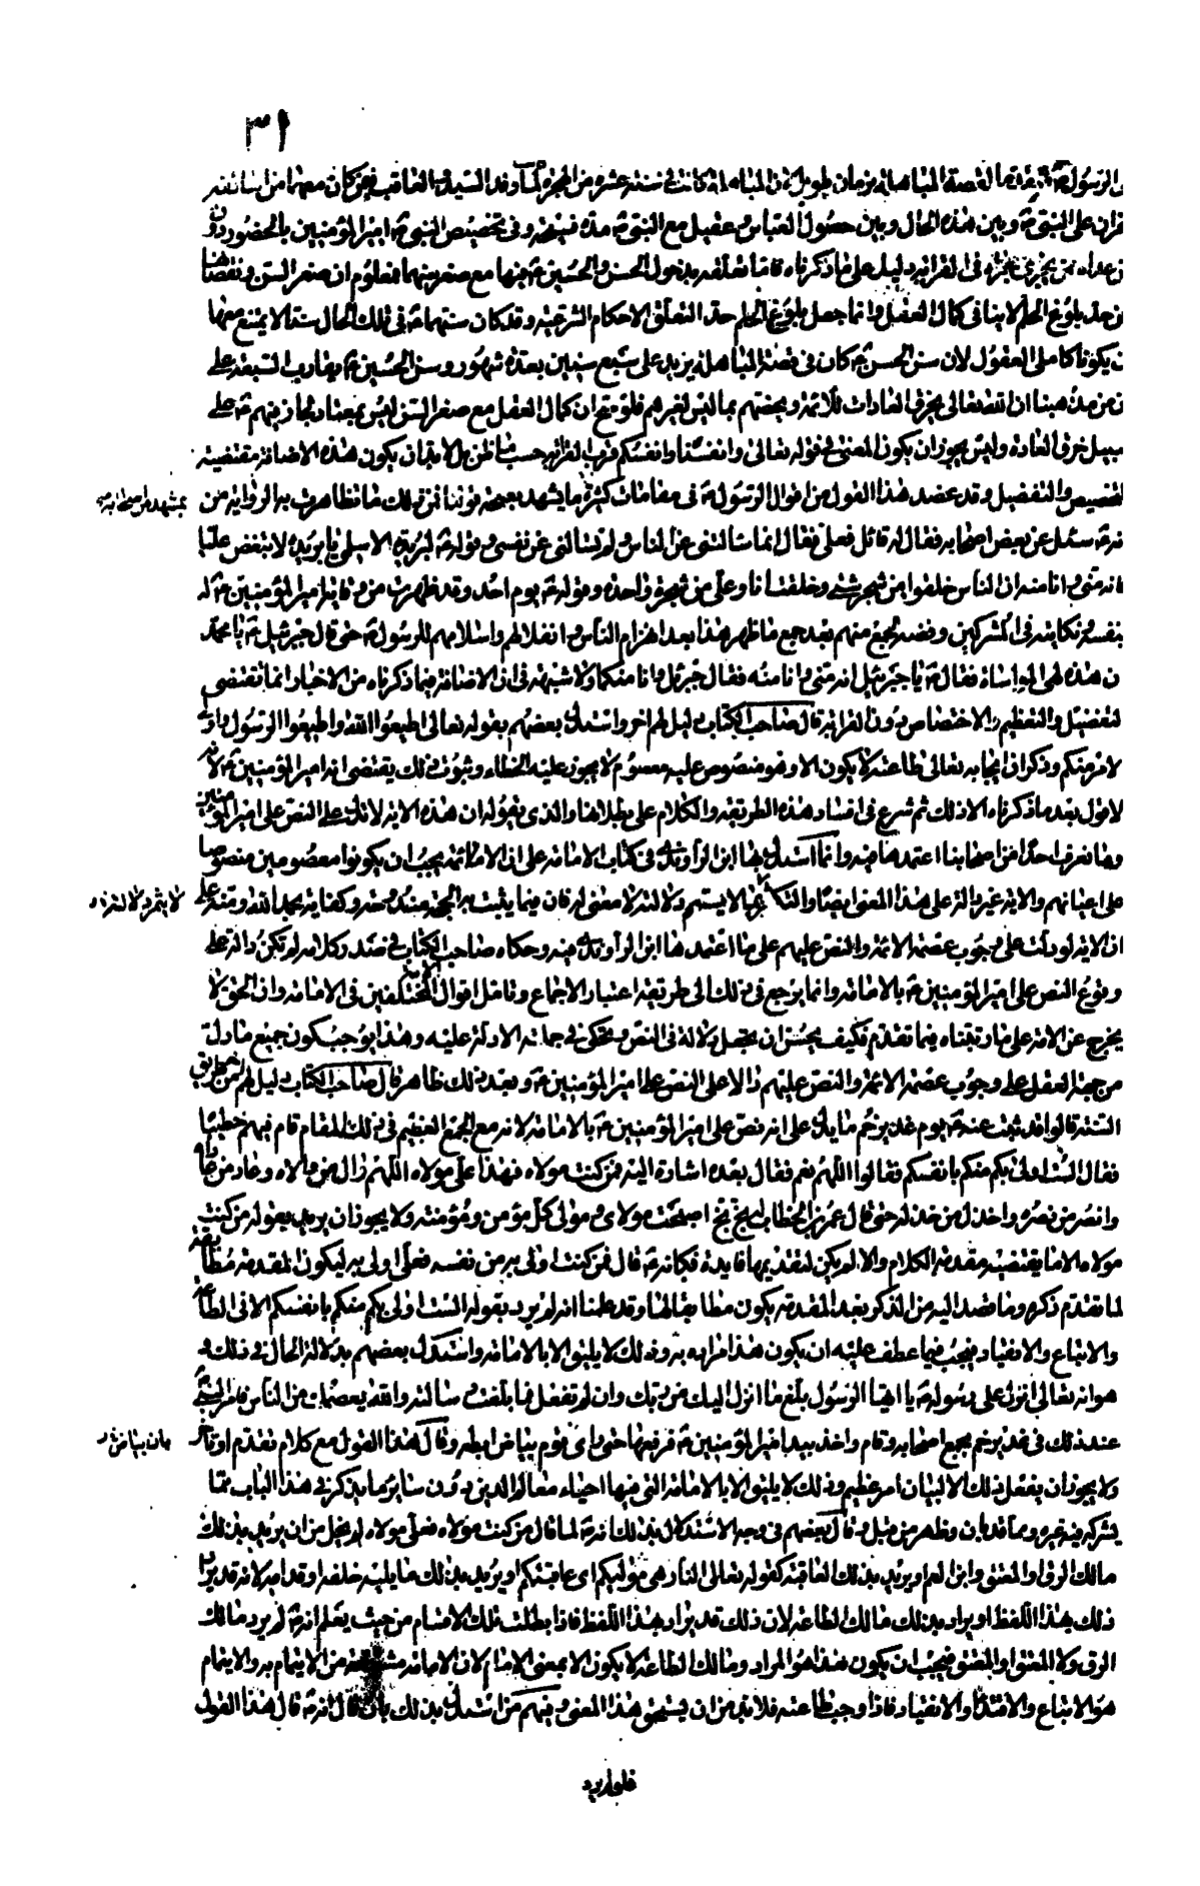 ١٣
الرسول ع تقدمها لقصة المباهلة بزمان طويل لان المباهلة كانت في سنة عشر من الهجرة لما وفد السيد والعاقب فيمن كان معهما من اساقفة
نجران على النبي ع وبين هذه الحال وبين حصول العباس وعقيل مع النبي ع مدة فسيحة وفي تخصيص النبي ع امير المؤمنين بالحضور دون
من عداه ممن يجري مجراه في القرابة دليل على ما ذكرناه فاما تعلقه بدخول الحسن والحسين ع فيها مع صغر سنهما فمعلوم ان صغر السن ونقصانها
عن حد بلوغ الحلم لا ينافي كمال العقل وانما جعل بلوغ الحلم حدا لتعلق الاحكام الشرعية وقد كان سنهما ع في تلك الحال سنا لا يمتنع معها
ان يكونا كاملي العقول لان سن الحسن ع كان في قصة المباهلة يزيد على سبع سنين بعدة شهور وسن الحسين ع يقارب السبعة على
ان من مذهبنا ان الله تعالى يخرق العادات للائمة ويخصهم بما ليس لغيرهم فلو صح ان كمال العقل مع صغر السن ليس بمعتاد لجاز فيهم ع على
سبيل خرق العادة وليس يجوز ان يكون المعنى في قوله تعالى وانفسنا وانفسكم قرب القرابة حسب ما ظن بل لا بد ان يكون هذه الاضافة مقتضية
للتخصيص والتفضيل وقد عضد هذا القول من اقوال الرسول ع في مقامات كثيرة ما يشهد بصحة قولنا فمن ذلك ما تظاهرت به الرواية من
انه ع سئل عن بعض اصحابه فقال له قائل فعلي فقال انما سالتني عن الناس ولم تسالني عن نفسي وقوله ع لبريدة الاسلمي يا بريدة لا تبغض عليا
فانه مني وانا منه ان الناس خلقوا من شجر شتى وخلقت انا وعلي من شجرة واحدة وقوله ع يوم احد وقد ظهرت من وقاية امير المؤمنين ع له
بنفسه ونكايته في المشركين وفضه لجمع منهم بعد جمع ما ظهر هذا بعد انهزام الناس وانفلالهم واسلامهم للرسول ع حتى قال جبرئيل ع يا محمد
ان هذه لهي المواساة فقال ع يا جبرئيل انه مني وانا منه فقال جبرئيل وانا منكما ولا شبهة في ان الاضافة فيما ذكرناه من الاخبار انما تقتضي
التفضيل والتعظيم والاختصاص دون القرابة قال صاحب الكتاب دليل لهم اخر واستدل بعضهم بقوله تعالى اطيعوا الله واطيعوا الرسول واولي
الامر منكم وذكر ان ايجابه تعالى طاعته لا يكون الا وهو منصوص عليه معصوم لا يجوز عليه الخطاء وثبوت ذلك يقتضي انه امير المؤمنين ع لانه
لا قول بعد ما ذكرناه الا ذلك ثم شرع في افساد هذه الطريقة والكلام على بطلانها والذي نقوله ان هذه الاية لا تدل على النص على امير المؤمنين
وما نعرف احدا من اصحابنا اعتمدها فيه وانما استدل بها ابن الراوندي في كتاب الامامة على ان الائمة يجب ان يكونوا معصومين منصوصا
على اعيانهم والاية غير دالة على هذا المعنى ايضا والتكثير بما لا يستمر دلالته لا معنى له فان فيما يثبت به الحجة مندوحة وكفاية بحمد الله ومنه على
ان الاية لو دلت على وجوب عصمة الائمة والنص عليهم على ما اعتمدها ابن الراوندي فيه وحكاه صاحب الكتاب في صدر كلامه لم تكن دالة على
وقوع النص على امير المؤمنين ع بالامامة وانما يرجع في ذلك الى طريقة اعتبار الاجماع وتامل اقوال الامة المختلفين في الامامة وان الحق لا
يخرج عن الامة على ما رتبناه فيما تقدم فكيف يحسن ان يجعل دلالة في النص ويحكى في جملة الادلة عليه وهذا يوجب كون جميع ما دل
من جهة العقل على وجوب عصمة الائمة والنص عليهم دالا على النص على امير المؤمنين ع وبعد ذلك ظاهر قال صاحب الكتاب دليل لهم من طريق
السنة قالوا قد ثبت عنه ع يوم غدير خم ما يدل على انه نص على امير المؤمنين ع بالامامة لانه مع الجمع العظيم في ذلك المقام قام فيهم خطيبا
فقال الست اولى بكم منكم بانفسكم فقالوا اللهم نعم فقال بعده اشارة اليه فمن كنت مولاه فهذا علي مولاه اللهم وال من والاه وعاد من عاداه
وانصر من نصره واخذل من خذله حتى قال عمر بن الخطاب له بخ بخ اصبحت مولاي ومولى كل مؤمن ومؤمنة ولا يجوز ان يريد بقوله من كنت
مولاه الا ما يقتضيه مقدمة الكلام والا لم يكن لتقديمها فايدة فكانه ع قال فمن كنت اولى به من نفسه فعلي اولى به ليكون المقدمة مطابقة
لما تقدم ذكره وما قصد اليه من الذكر بعد المقدمة يكون مطابقا لها وقد علمنا انه لم يرد بقوله الست اولى بكم منكم بانفسكم الا في الطاعة
والاتباع والانقياد فيجب فيما عطف عليه ان يكون هذا مراده به وذلك لا يليق الا بالامامة واستدل بعضهم بدلالة الحال في ذلك و
هو انه تعالى انزل على رسوله ع يا ايها الرسول بلغ ما انزل اليك من ربك وان لم تفعل فما بلغت رسالته والله يعصمك من الناس فامر النبي ع
عند ذلك في غدير خم بجمع اصحابه وقام واخذ بيد امير المؤمنين ع فرفعها حتى راى قوم بياض ابطه وقال هذا القول مع كلام تقدم او تاخر
ولا يجوز ان يفعل ذلك الا لبيان امر عظيم وذلك لا يليق الا بالامامة التي فيها احياء معالم الدين دون سائر ما يذكر في هذا الباب مما
يشركه فيه غيره ومما قد بان وظهر من قبل وقال بعضهم في وجه الاستدلال بذلك انه ع لما قال من كنت مولاه فعلي مولاه لم يخل من ان يريد بذلك
مالك الرق والمعتق وابن العم او يريد بذلك العاقبة كقوله تعالى النار هي موليكم اي عاقبتكم او يريد بذلك ما يليه خلفه او قدامه لانه قد يراد
ذلك بهذا اللفظ او يراد بذلك مالك الطاعة لان ذلك قد يراد بهذا اللفظ فاذا بطلت تلك الاقسام من حيث يعلم انه ع لم يرد مالك
الرق ولا المعتق والمعتق فيجب ان يكون هذا هو المراد ومالك الطاعة لا يكون الا بمعنى الامام لان الامامة مشتقة من الايتمام به والايتمام
هو الاتباع والاقتداء والانقياد فاذا وجبت طاعته فلا بد من ان يستحق هذا المعنى وفيهم من استدل بذلك بان قال انه ع قال هذا القول
فلو لم يرد